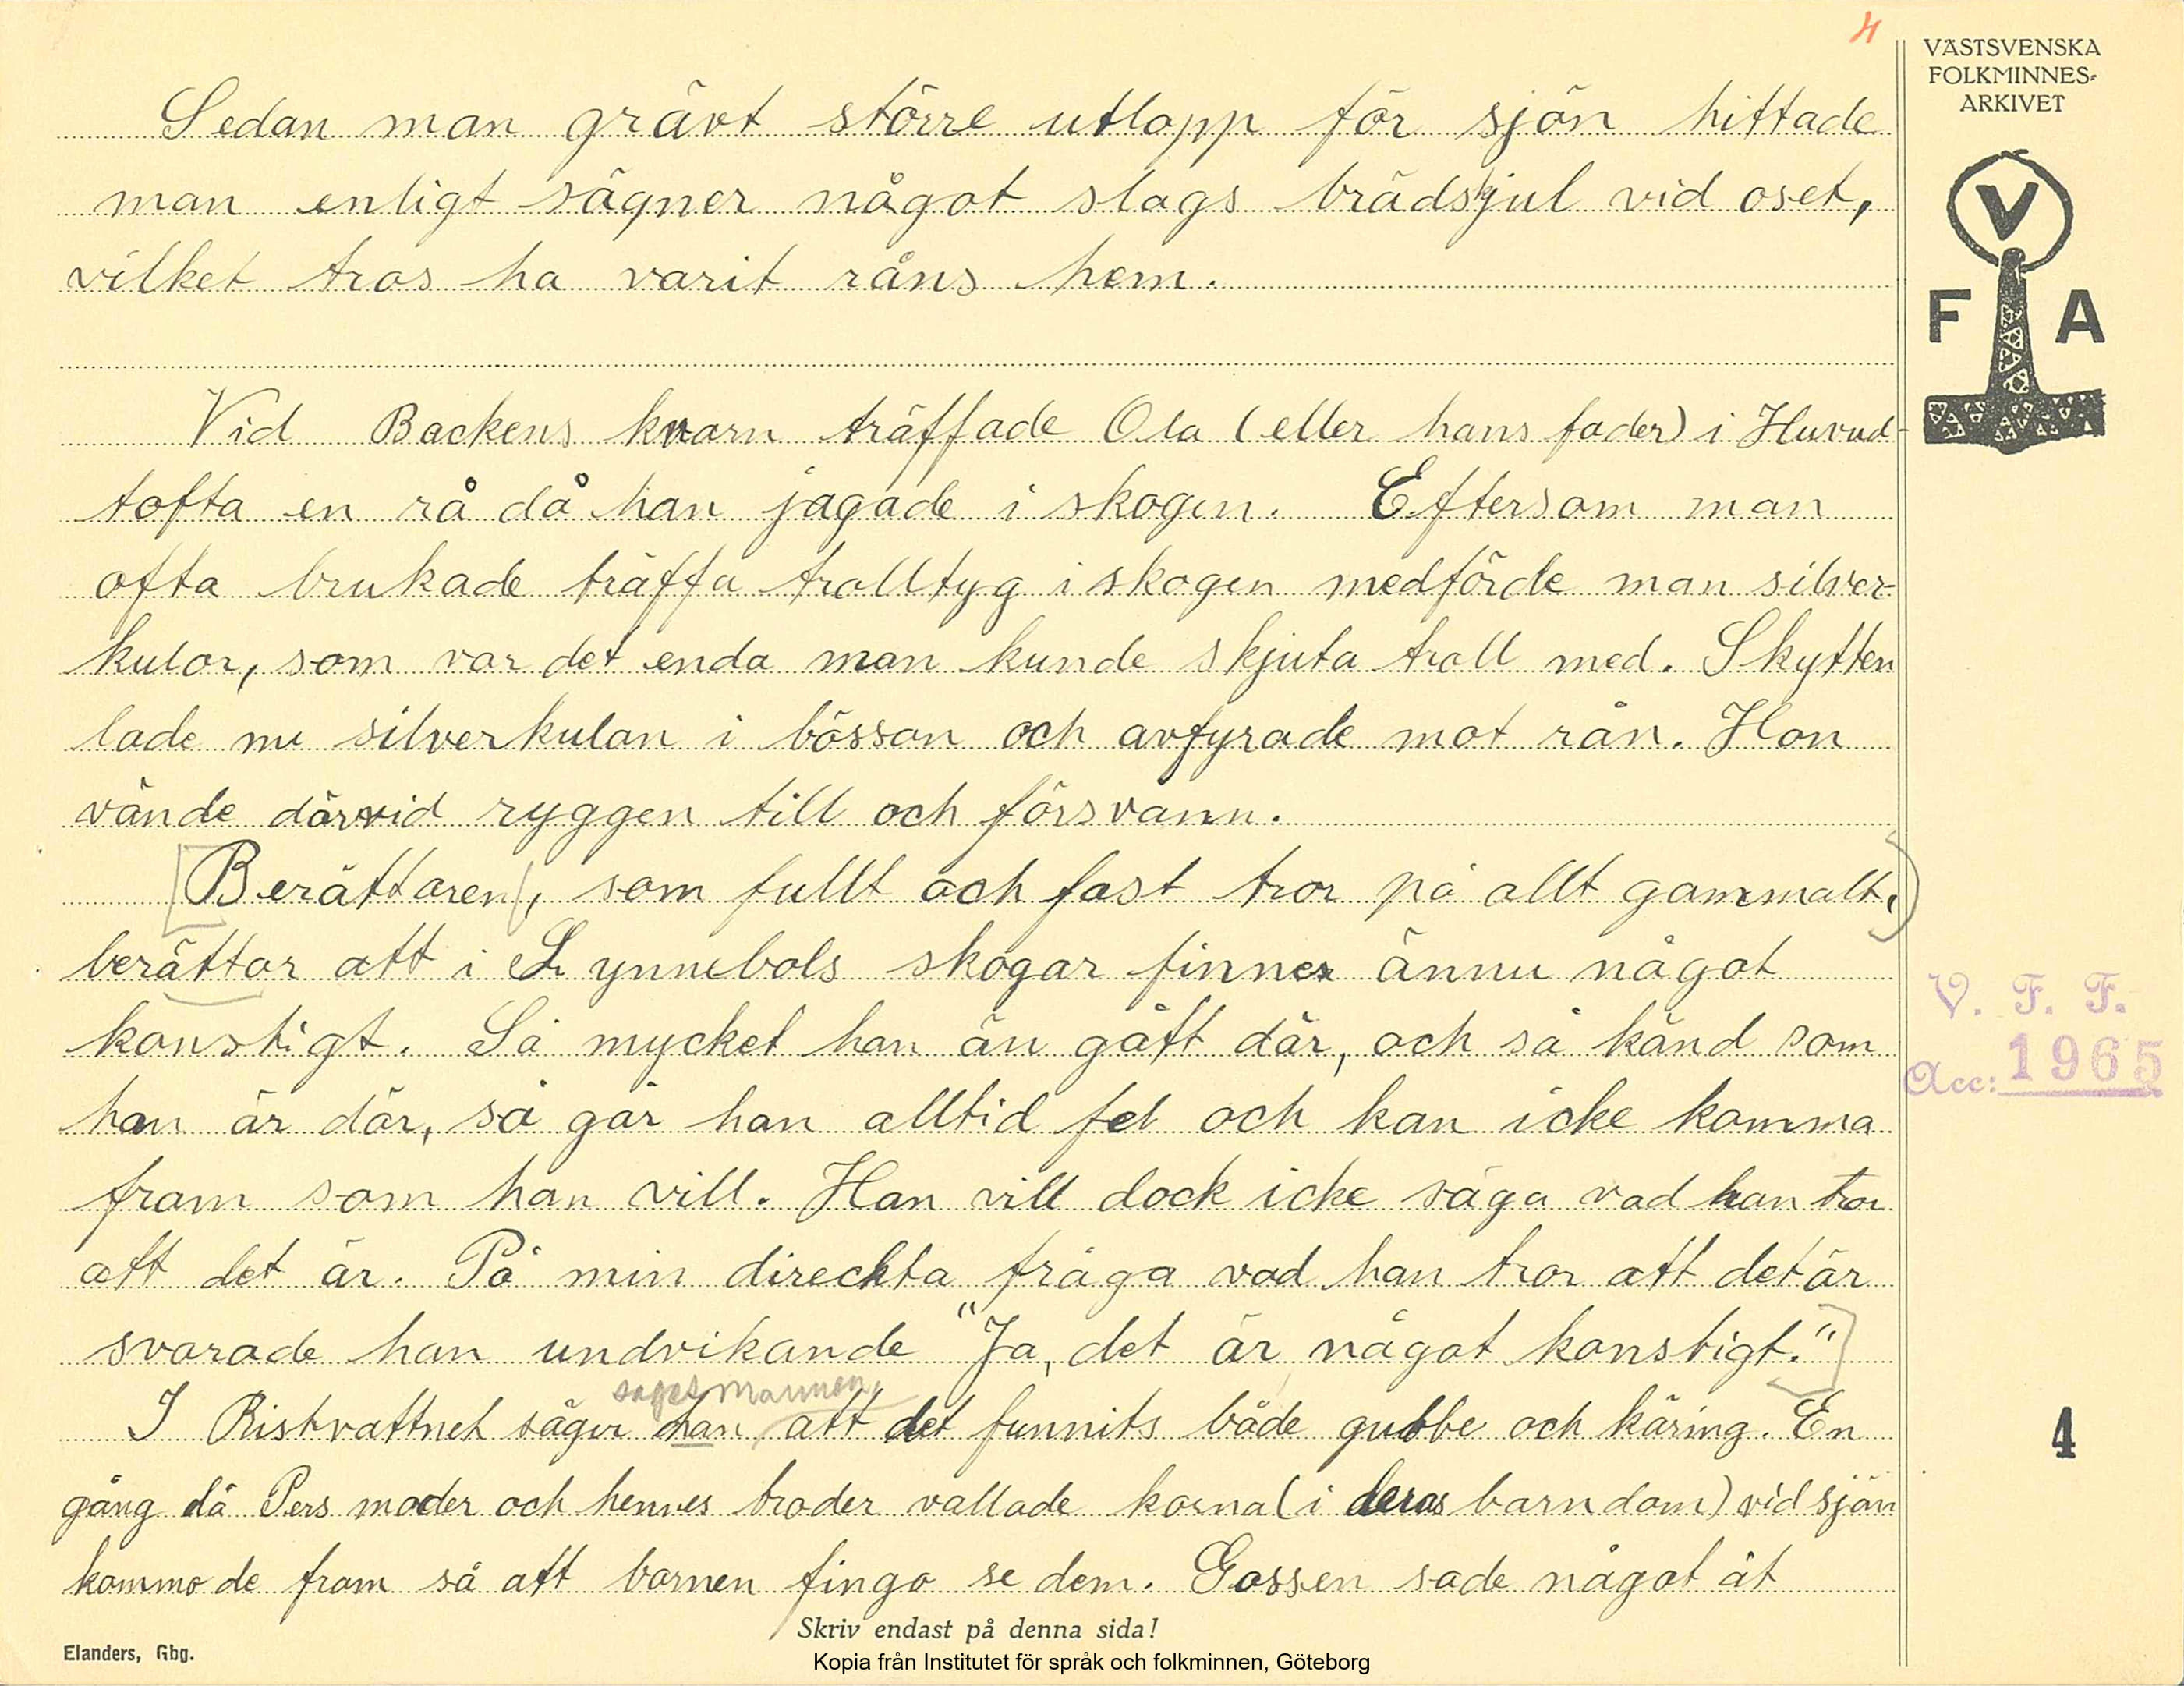 4
VÄSTSVENSKA
FOLKMINNES-
ARKIVET
V
F A
Sedan man grävt större utlopp för sjön hittade
man enligt sägner något slags brädskjul vid oset,
vilket tros ha varit råns hem.
Vid Backens kvarn träffade Ola (eller hans fader) i Huvud-
tofta en rå då han jagade i skogen. Eftersom man
ofta brukade träffa trolltyg i skogen medförde man silver-
kulor, som var det enda man kunde skjuta troll med. Skytten
lade nu silverkulan i bössan och avfyrade mot rån. Hon
vände därvid ryggen till och försvann.
[Berättaren, som fullt och fast tror på allt gammalt,)
berättar att i Lynnebols skogar finnes ännu något
konstigt. Så mycket han än gått där, och så känd som
han är där, så går han alltid fel och kan icke komma
fram som han vill. Han vill dock icke säga vad han tror
att det är. På min direckta fråga vad han tror att det är
svarade han undvikande "Ja, det är något konstigt."]
sagesmannen
I Ristvattnet säger han att det funnits både gubbe och käring. En
gång då Pers moder och hennes broder vallade korna (i deras barndom) vid sjön
kommo de fram så att barnen fingo se dem. Gossen sade något åt
V. F. F.
Acc: 1965
4
Skriv endast på denna sida!
Elanders, Gbg.
Kopia från Institutet för språk och folkminnen, Göteborg